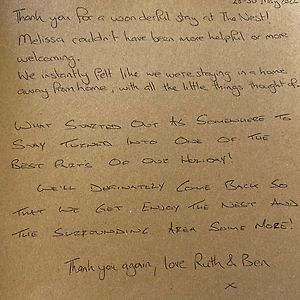 20-30 May 2022
Thank you for a wonderful stay at The Nest!
Melissa couldn't have been more helpful or more
welcoming.
We instantly felt like we were staying in a home
away from home, with all the little things thought of.
WHAT STARTED OUT AS SOMEWHERE TO
STAY TURNED INTO ONE OF THE
BEST PARTS OF OUR HOLIDAY!
WE'LL DEFINATELY COME BACK SO
THAT WE GET ENJOY THE NEST AND
THE SURROUNDING AREA SOME MORE!
Thank you again, love Ruth & Ben
x